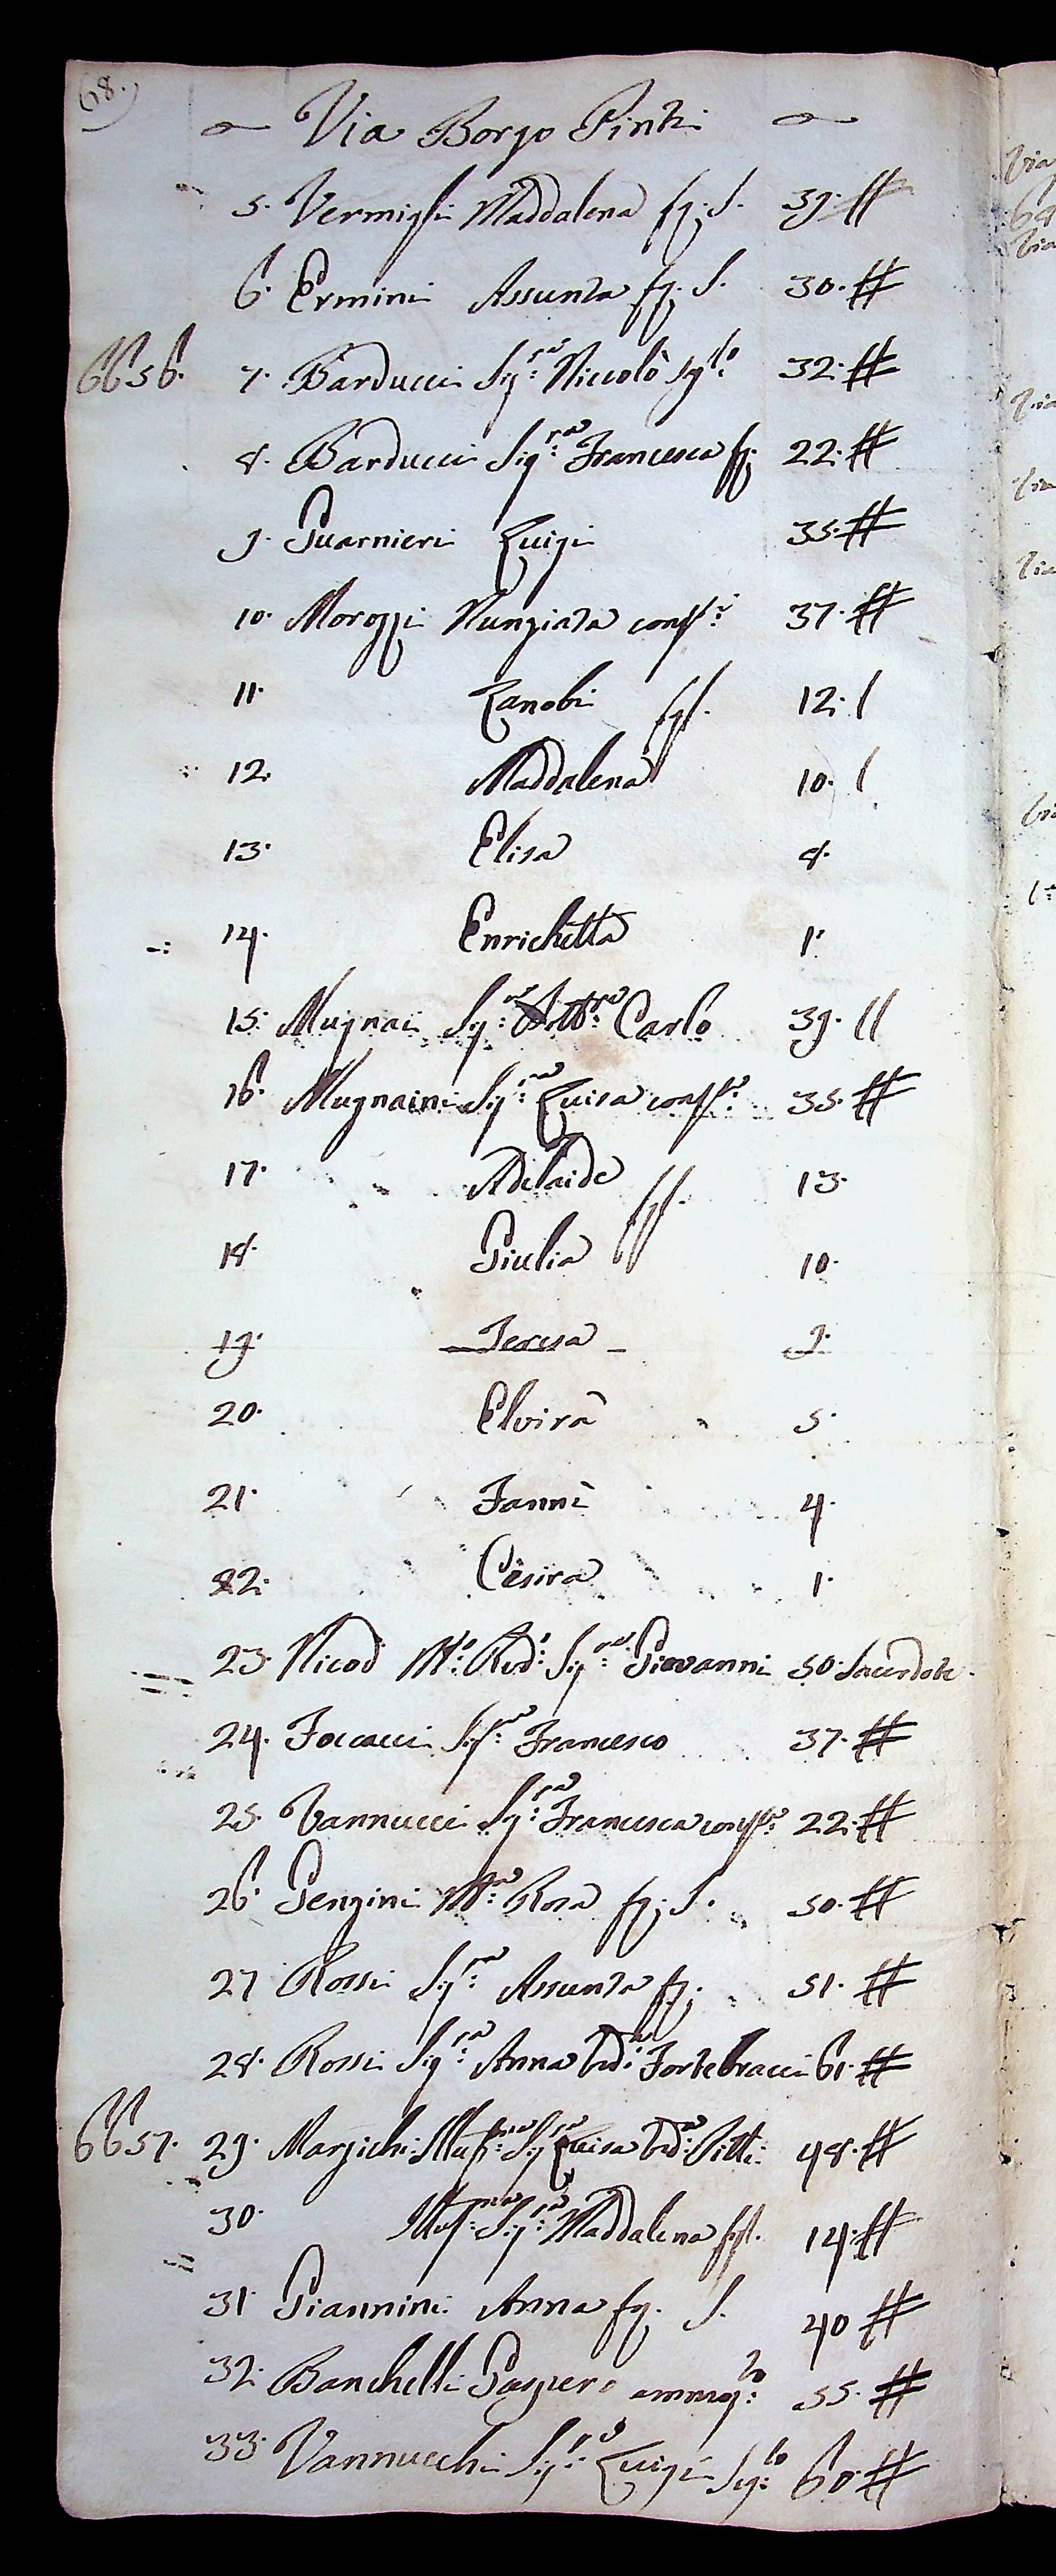 68.
Via Borgo Pinti
5. Vermigli Maddalena fg. S. 39. #
6. Ermini Assunta fg. S. 30. #
6656. 7. Barducci Sig.re Niccolò sg.lo 32. #
8. Barducci Sig.ra Francesca fg. 22. #
9. Guarnieri Luigi 35. #
10. Morozzi Nunziata cons.e 37. #
11. Zanobi figl. 12. /
12. Maddalena 10. /
13. Elisa 8.
14. Enrichetta 1.
15. Mugnai Sig.re Dott.re Carlo 39. //
16. Mugnaini Sig.ra Luisa cons.e 35. #
17. Adelaide figl. 13.
18. Giulia 10.
19. Teresa 9.
20. Elvira 5.
21. Fannì 4.
22. Cesira 1.
23. Nicod M.o Rev.do Sig.re Giovanni 50. Sacerdote.
24. Focacci Sig.re Francesco 37. #
25. Vannucci Sig.ra Francesca cons.e 22. #
26. Genzini M.a Rosa fg. S. 50. #
27 Rossi Sig.ra Assunta fg. 51. #
28. Rossi Sig.ra Anna Ved.a Fortebracci 61. #
6657. 29. Marzichi Illus.ma Sig.ra Luisa Ved.a Pitti 48. #
30. Illus.ma Sig.ra Maddalena figl. 14. #
31 Giannini Anna fg. S. 40 #
32. Banchelli Gaspero ammog.to 55. #
33. Vannucchi Sig.re Luigi sg.lo 60. #
Via
68
Via